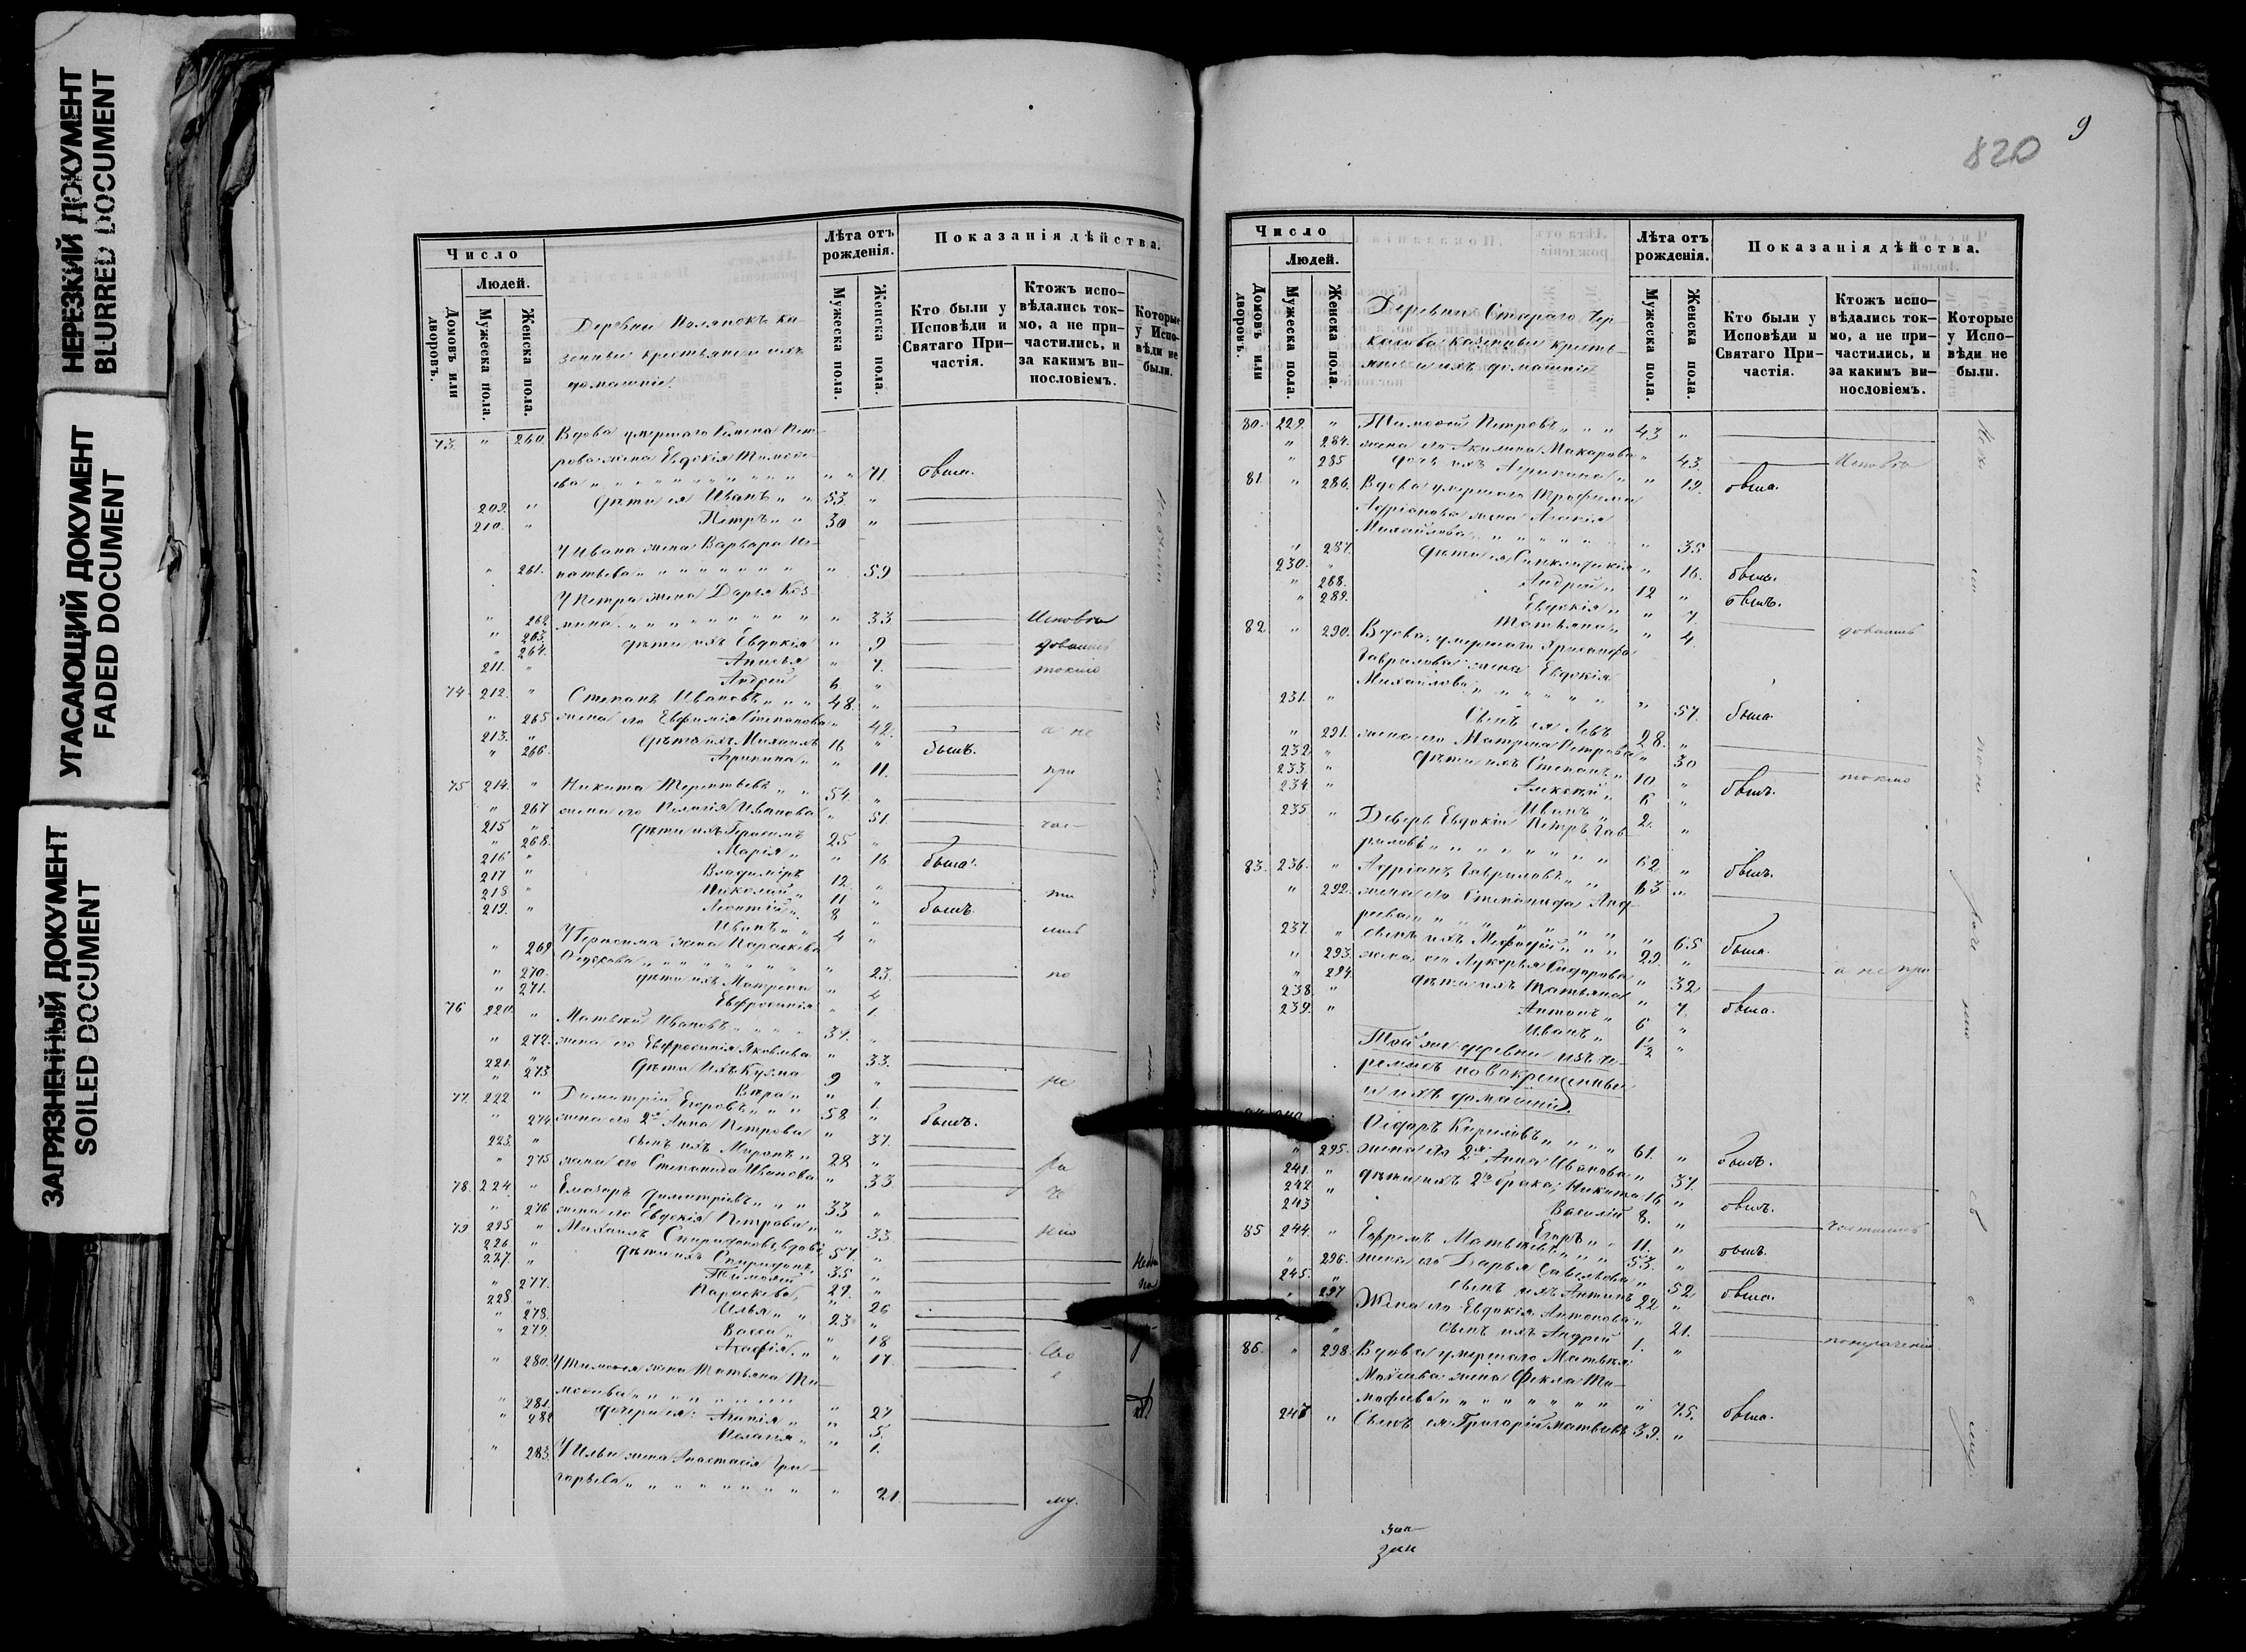 НЕРЕЗКИЙ ДОКУМЕНТ
BLURRED DOCUMENT
УГАСАЮЩИЙ ДОКУМЕНТ
FADED DOCUMENT
ЗАГРЯЗНЕННЫЙ ДОКУМЕНТ
SOILED DOCUMENT
Число
Людей.
Домовъ или дворовъ.
Мужеска пола.
Женска пола.
Деревни Полянокъ ка-
зенные крестьяне и ихъ
домашніе
Лѣта отъ рожденія.
Мужеска пола.
Женска пола.
Показанія дѣйства.
Кто были у Исповѣди и Святаго Причастія.
Ктожъ исповѣдались токмо, а не причастились, и за какимъ винословіемъ.
Которые у Исповѣди не были.
73. " 260. Вдова умершаго Семена Пет-
рова жена Евдокія Тимофе-
ева " " 71. была.
209. " дѣти ея Иванъ " 53. "
210. " Петръ " 30 "
У Ивана жена Варвара Иг-
" 261. натьева " " 59
У Петра жена Дарья Коз-
" 262. мина " " 33 Исповѣ
" 263. дѣти ихъ Евдокія " 9 довались
" 264. Анисья " 7. токмо
211. " Андрей 6 "
74. 212. " Степанъ Ивановъ " 48. "
" 265 жена его Евфимія Степанова " 42. а не
213. " дѣти ихъ Михаилъ 16 " былъ.
" 266. Агрипина " " 11. при
75 214. " Никита Терентьевъ " 54. "
" 267 жена его Пелагія Иванова " 51 час-
215 " дѣти ихъ Герасимъ 25 "
" 268. Марія " " 16 была.
216 " Владиміръ 12. "
217 " Николай " 11 " ти
218 " Леонтій " 8 " былъ
219. " Иванъ " 4 " лись
У Герасима жена Параскева
" 269 Сидорова " " 23. по
" 270. дѣти ихъ Матрена " 4
" 271. Евфросинія " 1.
76 220. " Матвей Ивановъ " 37. "
" 272. жена его Евфросинія Яковлева " 33.
221. " дѣти ихъ Кузма 9 "
" 273 Вѣра " " 1. не
77. 222 " Димитрій Егоровъ " 58 " былъ.
" 274 жена его 2я Анна Петрова " 37.
223. " сынъ ихъ Миронъ " 28 "
" 275 жена его Степанида Иванова " 33 ра
78. 224. " Елеазаръ Димитріевъ " 33 "
" 276 жена его Евдокія Петрова " " 33
79. 225 " Михаилъ Спиридоновъ, вдовъ 57. " нію
226. " дѣти ихъ Спиридонъ 35 "
227. " Тимофей 29. "
" 277. Параскева " 26
228. " Илья " 23 "
" 278. Васса " " 18
" 279. Агафія " " 17. сво
" 280. У Тимофея жена Татьяна Ти-
мофеева " " 27
" 281. дочери ея: Агапія " " 5.
" 282 Пелагія " " 1.
" 283. У Ильи жена Анастасія Гри-
горьева " " 21. му.
820 9
Число
Людей.
Домовъ или дворовъ.
Мужеска пола.
Женска пола.
Деревни Стараго Чер-
касова казенные кресть-
яне и ихъ домашніе
Лѣта отъ рожденія.
Мужеска пола.
Женска пола.
Показанія дѣйства.
Кто были у Исповѣди и Святаго Причастія.
Ктожъ исповѣдались токмо, а не причастились, и за какимъ винословіемъ.
Которые у Исповѣди не были.
80. 229. " Тимофей Петровъ " 43 "
" 284. жена его Акилина Макарова " 43. Исповѣ
" 285 дочь ихъ Агрипина " " 19. была.
81. " 286. Вдова умершаго Трофима
Адріанова жена Агапія
Михайлова " " 35
" 287. дѣти ея Синклитикія " 16. была.
230. " Андрей " 12 " былъ.
" 288. Евдокія " " 7.
" 289. Татьяна " " 4. довались
82 " 290. Вдова умершаго Хрисанфа
Гаврилова жена Евдокія
Михайлова " " 57. была
231. " Сынъ ея Левъ 28. "
" 291. жена его Матрена Петрова " 30 токмо
232. " дѣти ихъ Степанъ " 10. " былъ.
233. " Алексѣй " 6 "
234 " Иванъ " 2. "
235 " Деверь Евдокіи Петръ Гав-
риловъ " 62 " былъ.
83. 236. " Адріанъ Гавриловъ " 63 "
" 292. жена его Степанида Анд-
реева " " 65 была.
237. " сынъ ихъ Мефодій " 29. "
" 293. жена его Лукерья Сидорова " 32 а не при
" 294 дѣти ихъ Татьяна " 7. была.
238. " Антонъ " 6 "
239. " Иванъ " 1/2 "
Той же деревни изъ че-
ремисъ новокрещенные
и ихъ домашніе
Сидоръ Кириловъ " 61. " былъ.
" 295. жена его 2я Анна Иванова " 37.
241. " дѣти ихъ 2го брака; Никита 16 " былъ.
242 " Василій 8. "
243 Егоръ " 11. " былъ. частились
85 244. " Ефремъ Матвѣевъ " 53. "
" 296. жена его Дарья Савельева " 52 была.
245. " сынъ ихъ Антипъ 22 "
" 297 Жена его Евдокія Антонова " 21.
" сынъ ихъ Андрей 1. " понуреченію
86. " 298. Вдова умершаго Матвѣя
жена Фекла Ти-
мофеева " " 75. была.
247 " Сынъ ея Григорій Матвѣевъ 39. "